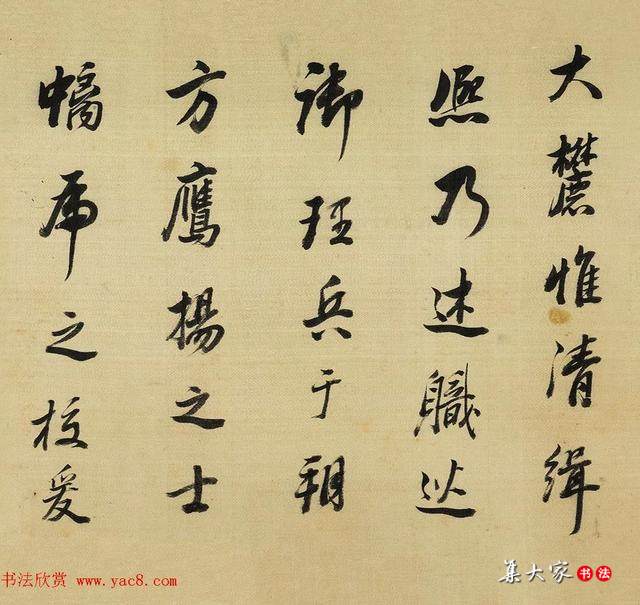 大麓惟清緝
熙乃述職巡
御理兵于朔
方鷹揚之士
螭虎之校爰
书法欣赏 www.yac8.com
集大家书法